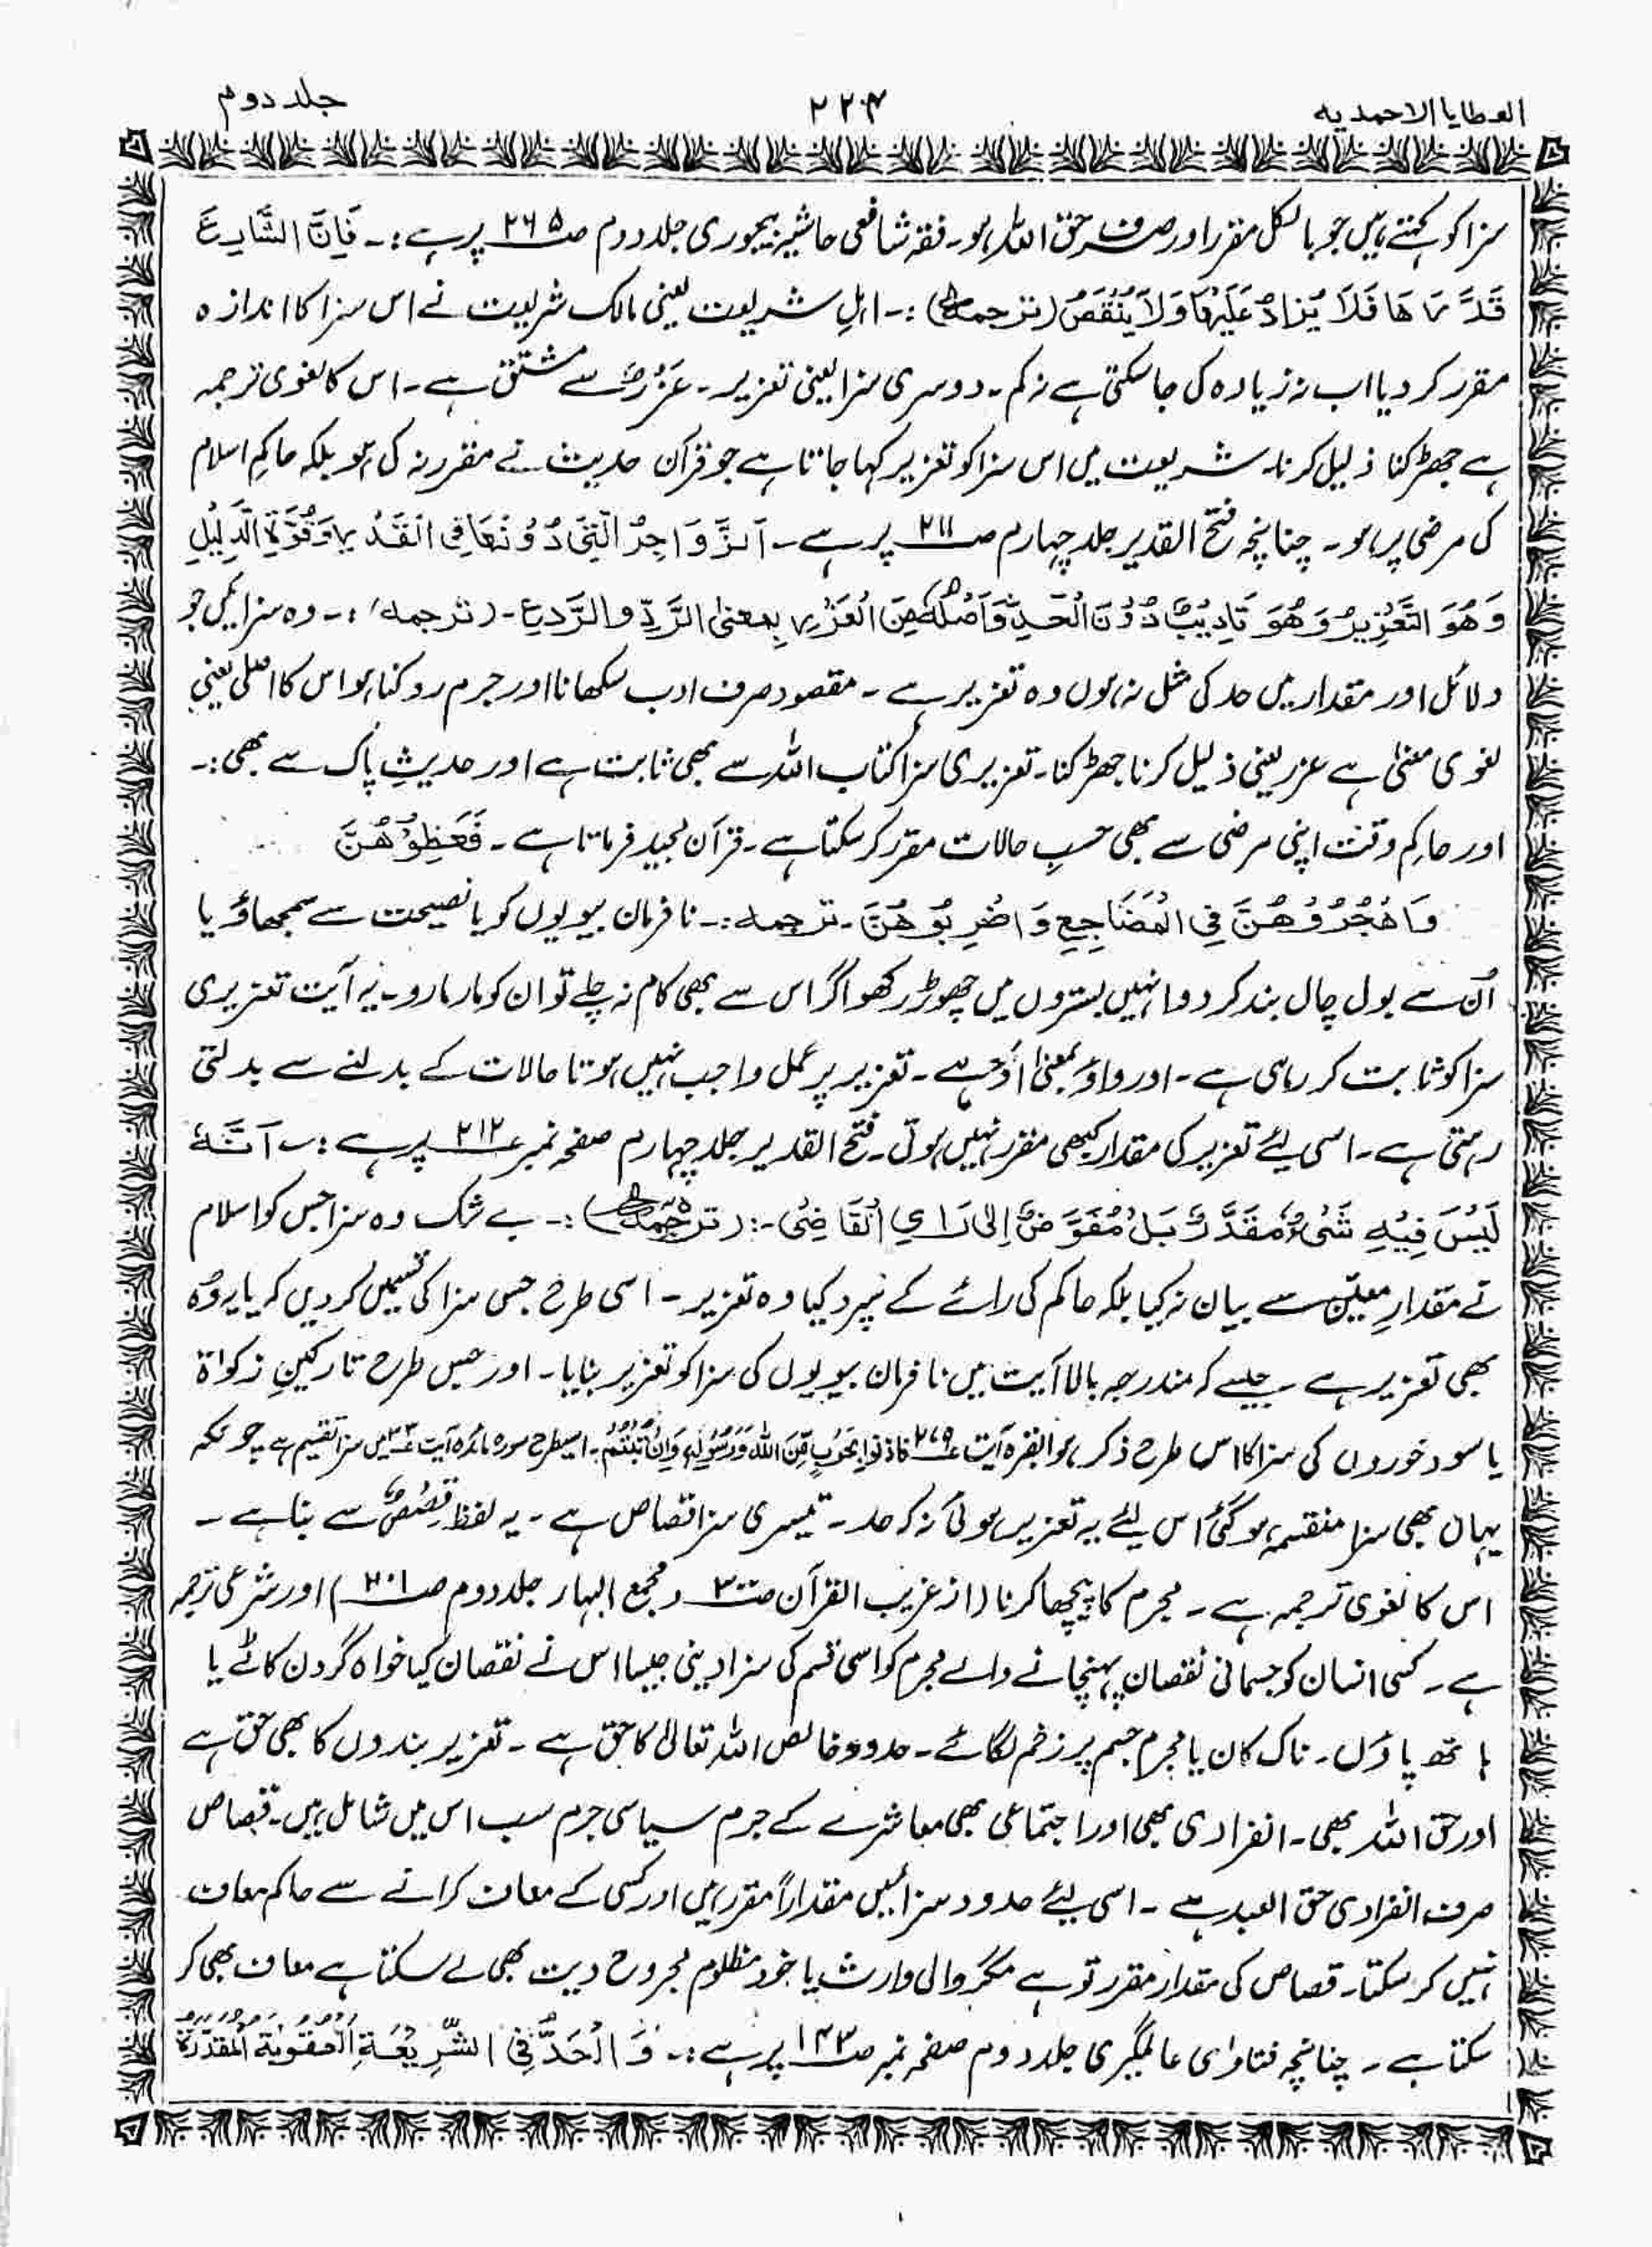 العطایا الاحمدیہ ۲۲۴ جلد دوم
سزا کو کہتے ہیں جو بالکل مقرر اور صرف حق اللہ ہو۔ فقہ شافعی حاشیہ بیجوری جلد دوم صـ ۲۶۵ پر ہے :۔ فَاِنَّ الشَّارِعَ
قَدَّرَهَا فَلَا یُزَادُ عَلَیْهَا وَلَا یُنْقَصُ (ترجمہ) :۔ اہلِ شریعت یعنی مالک شریعت نے اس سزا کا اندازہ
مقرر کر دیا اب نہ زیادہ کی جا سکتی ہے نہ کم۔ دوسری سزا یعنی تعزیر۔ عَزْرٌ سے مشتق ہے۔ اس کا لغوی ترجمہ
ہے جھڑکنا ذلیل کرنا۔ شریعت میں اس سزا کو تعزیر کہا جاتا ہے جو قرآن حدیث نے مقرر نہ کی ہو بلکہ حاکمِ اسلام
کی مرضی پر ہو۔ چنانچہ فتح القدیر جلد چہارم صـ ۲۱۱ پر ہے۔ اَلزَّوَاجِرُ الَّتِیْ دُوْنَهَا فِی الْقَدْرِ وَقُوَّةِ الدَّلِیْلِ
وَهُوَ التَّعْزِیْرُ وَهُوَ تَادِیْبٌ دُوْنَ الْحَدِّ وَاَصْلُهٗ مِنَ الْعَزْرِ بِمعنیٰ الرَّدِّ والرَّدعِ۔ (ترجمہ) :۔ وہ سزائیں جو
دلائل اور مقدار میں حد کی مثل نہ ہوں وہ تعزیر ہے۔ مقصود صرف ادب سکھانا اور جرم روکنا ہو اس کا اصلی یعنی
لغوی معنیٰ ہے عزر یعنی ذلیل کرنا جھڑکنا۔ تعزیری سزا کتاب اللہ سے بھی ثابت ہے اور حدیثِ پاک سے بھی :۔
اور حاکمِ وقت اپنی مرضی سے بھی حسبِ حالات مقرر کر سکتا ہے۔ قرآن مجید فرماتا ہے۔ فَعَظِوْهُنَّ
وَاهْجُرُوْهُنَّ فِی الْمَضَاجِعِ وَاضْرِبُوْهُنَّ۔ ترجمہ :۔ نافرمان بیویوں کو یا نصیحت سے سمجھاؤ یا
اُن سے بول چال بند کر دو انہیں بستروں میں چھوڑ رکھو اگر اس سے بھی کام نہ چلے تو ان کو مار مارو۔ یہ آیت تعزیری
سزا کو ثابت کر رہی ہے۔ اور واؤ بمعنیٰ اَوْ ہے۔ تعزیر پر عمل واجب نہیں ہوتا حالات کے بدلنے سے بدلتی
رہتی ہے۔ اسی لئے تعزیر کی مقدار کبھی مقرر نہیں ہوتی۔ فتح القدیر جلد چہارم صفحہ نمبر ۲۱۲ پر ہے :۔ اَنَّهٗ
لَیْسَ فِیْهِ شَیْءٌ مُقَدَّرٌ بَلْ مُفَوَّضٌ اِلیٰ رَاىِ الْقَاضِیْ :۔ (ترجمہ) :۔ بے شک وہ سزا جس کو اسلام
نے مقدارِ معیّن سے بیان نہ کیا بلکہ حاکم کی رائے کے سپرد کیا وہ تعزیر۔ اسی طرح جس سزا کی قسمیں کر دیں کہ یا یہ وُہ
بھی تعزیر ہے۔ جیسے کہ مندرجہ بالا آیت میں نافرمان بیویوں کی سزا کو تعزیر بنایا۔ اور جس طرح تارکینِ زکواۃ
یا سود خوروں کی سزا کا اس طرح ذکر ہوا بقرہ آیت ۲۷۹ فَاذَنُوْا بِحَرْبٍ مِّنَ اللهِ وَرَسُوْلِهٖ وَاِنْ تُبْتُمْ۔ اسیطرح سورہ مائدہ آیت ۳۳ میں سزا تقسیم ہے چونکہ
یہاں بھی سزا منقسم ہو گئی اس لئے یہ تعزیر ہوئی نہ کہ حد۔ تیسری سزا قصاص ہے۔ یہ لفظ قصصٌ سے بنا ہے۔
اس کا لغوی ترجمہ ہے۔ مجرم کا پیچھا کرنا (از غریب القرآن صـ ۳۰۰ و مجمع البہار جلد دوم صـ ۳۰۱) اور شرعی ترجمہ
ہے۔ کسی انسان کو جسمانی نقصان پہنچانے والے مجرم کو اسی قسم کی سزا دینی جیسا اس نے نقصان کیا خواہ گردن کاٹے یا
ہاتھ پاؤں۔ ناک کان یا مجرم جسم پر زخم لگائے۔ حدود خالص اللہ تعالیٰ کا حق ہے۔ تعزیر بندوں کا بھی حق ہے
اور حق اللہ بھی۔ انفرادی بھی اور اجتماعی بھی معاشرے کے جرم سیاسی جرم سب اس میں شامل ہیں۔ قصاص
صرف انفرادی حق العبد ہے۔ اسی لئے حدود سزائیں مقداراً مقرر ہیں اور کسی کے معاف کرانے سے حاکم معاف
نہیں کر سکتا۔ قصاص کی مقدار مقرر تو ہے مگر والی وارث یا خود مظلوم مجروح دیت بھی لے سکتا ہے معاف بھی کر
سکتا ہے۔ چنانچہ فتاوای عالمگیری جلد دوم صفحہ نمبر صـ ۱۴۳ پر ہے :۔ وَالْحَدُّ فِی الشَّرِیْعَةِ اَلْعُقُوْبَةُ الْمُقَدَّرَةُ